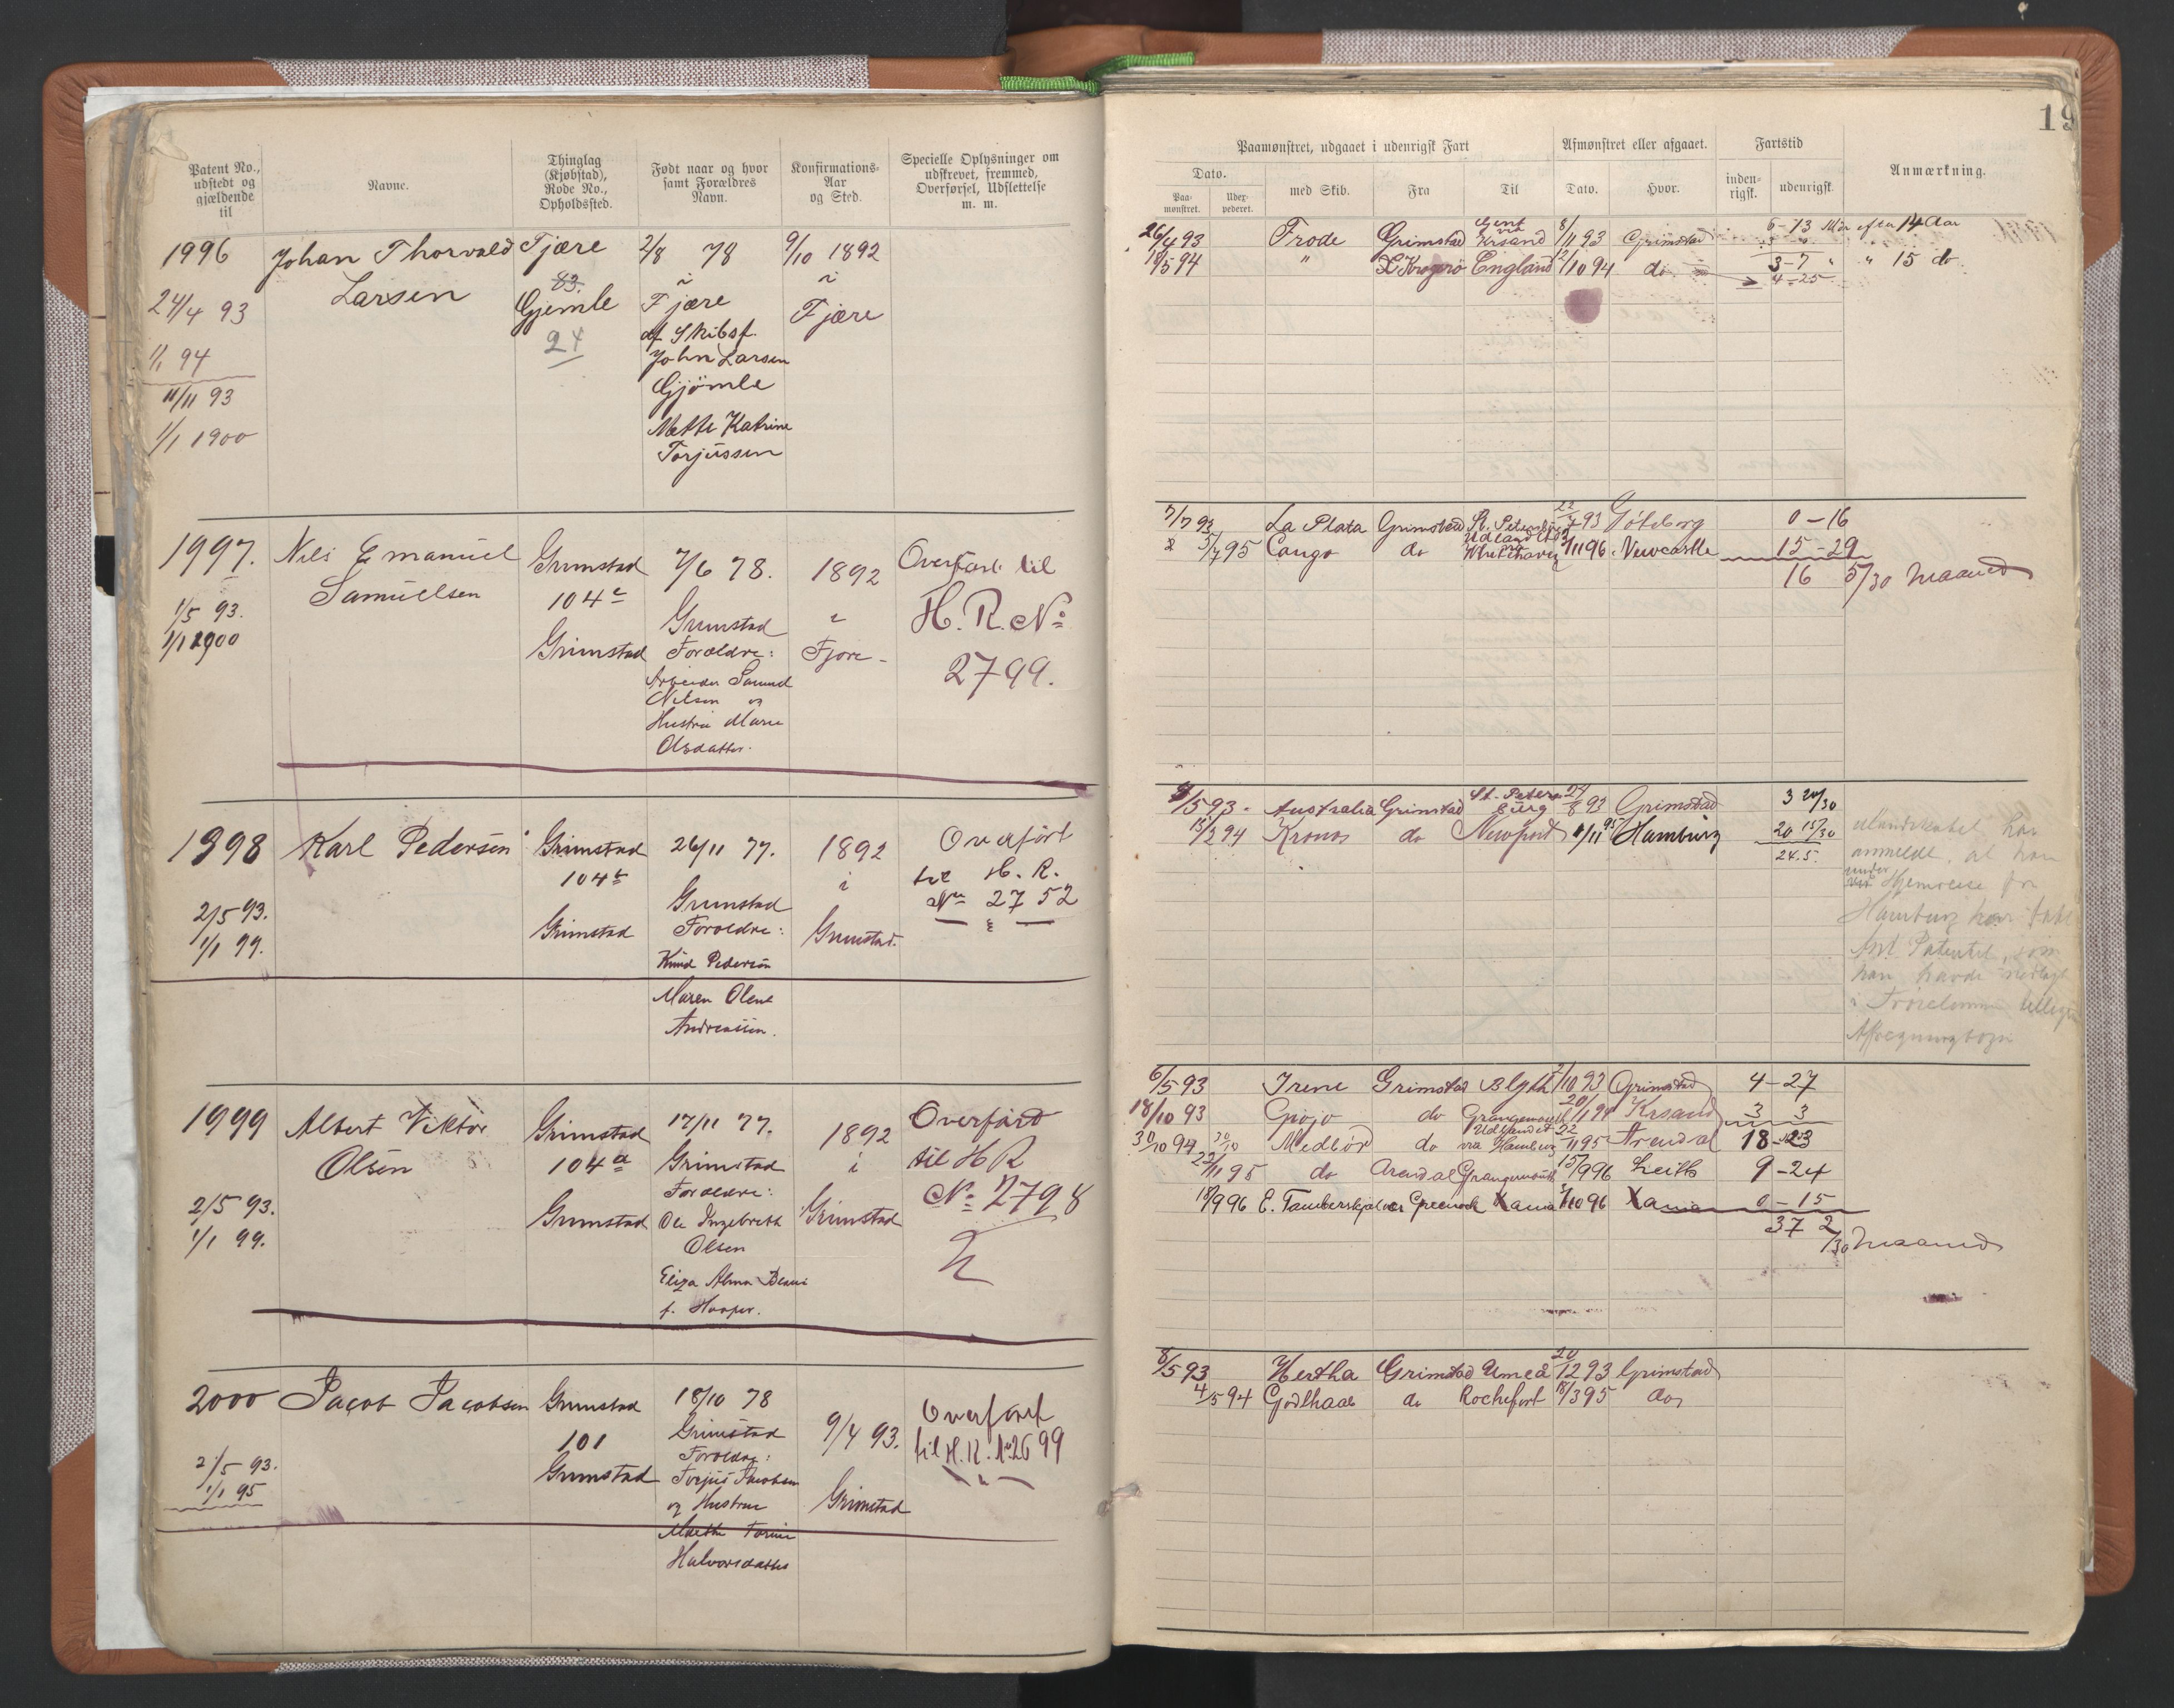 Patent No.,
udstedt og
gjældende
til
Navne.
Thinglag
(Kjøbstad),
Rode No.,
Opholdssted.
Født naar og hvor
samt Forældres
Navn.
Konfirmations-
Aar
og Sted.
Specielle Oplysninger om
udskrevet, fremmed,
Overførsel, Udslettelse
m. m.
1996
24/4 93
1/1 94
11/11 93
1/1 1900
Johan Thorvald
Larsen
Fjære
83.
Gjemle
24
2/8 78
i
Fjære
af Skibsf.
John Larsen
Gjömle
Mette Katrine
Torjussen
9/10 1892
i
Fjære
1997.
1/5 93.
1/1 1900
Nils Emanuel
Samuelsen
Grimstad
104
Grimstad
7/6 78.
Grimstad
Forældre:
Arbeider Samuel
Nilsen og
Hustru Marie
Olsdatter.
1892
i
Fjære
Overført til
H. R. No
2799.
1998
2/5 93.
1/1 99.
Karl Pedersen
Grimstad
104
Grimstad
26/11 77.
Grimstad
Forældre:
Knud Pedersen
Maren Oline
Andreassen.
1892
i
Grimstad.
Overført
til H. R.
No 2752
1999
2/5 93.
1/1 99.
Albert Viktor
Olsen
Grimstad
104 a
Grimstad
17/11 77.
Grimstad
Forældre:
Ole Ingebreth
Olsen
Eliza Alma
f. Hooper.
1892
i
Grimstad
Overført
til H R
No 2798
2000
2/5 93.
1/1 95
Jacob Jacobsen
Grimstad
101
Grimstad
18/10 78
Grimstad
Forældre:
Torjus Jacobsen
og Hustru
Halvorsdatter
9/4 93.
Grimstad
Overført
til H. R. No 2699
19
Paamønstret, udgaaet i udenrigsk Fart
Afmønstret eller afgaaet.
Fartstid
Anmærkning.
Dato.
Paa-
mønstret.
Udex-
pederet.
med Skib.
Fra
Til
Dato.
Hvor.
inden-
rigsk.
udenrigsk.
26/4 93 Frode Grimstad Gent via Krsand 8/11 93 Grimstad 6-13 efter 14 Aar
18/5 94 " L Kragerö England 2/10 94 do 3-7 " " 15 do
4-25
7/7 93 La Plata Grimstad St. Petersburg 22/7 93 Göteborg 0-16
5/7 95 Congo do Udlandet 3/11 96 Newcastle 15-29
16 5/30 Maaned
9/5 93. Australia Grimstad St. Petersburg 24/8 93 Grimstad 3 20/30
13/2 94 Kronos do Newport 11 95 Hamburg 20 15/30
24.5.
anmeldt, at han
under Hjemreise fra
Hamburg har
Patentet, som
han havde
i
Afregningsbogen
6/5 93 Irene Grimstad Blyth 2/10 93 Grimstad 4-27
18/10 93 Gjøjo do Grangemouth 20/1 94 Krsand 3 3
30/10 94 30/10 Medbör do Udlandet via Hamburg 22/11 95 Arendal 18-23
22/11 95 do Arendal Grangemouth 15/9 96 Leith 9-24
18/9 96 E. Tambarskjelver Greenock Xania 3/10 96 Xania 0-15
37 2/30 Maaned
8/5 93 Hertha Grimstad Umeå 20/12 93 Grimstad
4/5 94 Godthaab do Rochefort 18/3 95 do